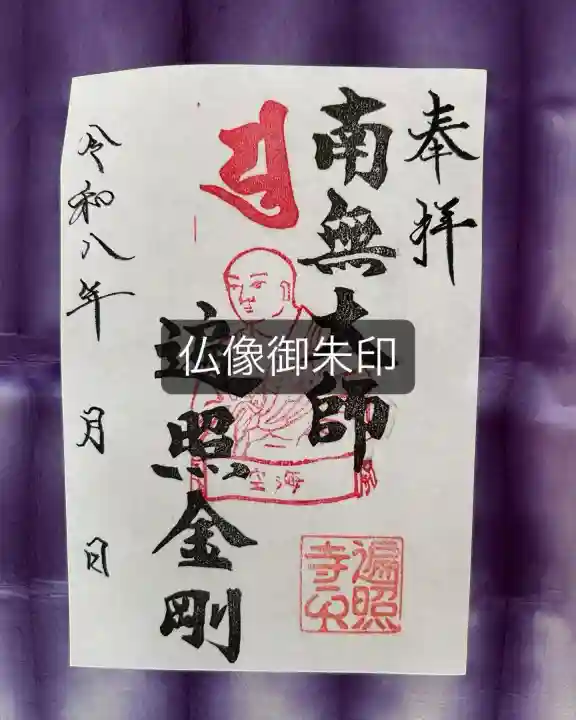 奉拝
南無大師
遍照金剛
令和八年 月 日
空海
遍照
寺印
仏像御朱印